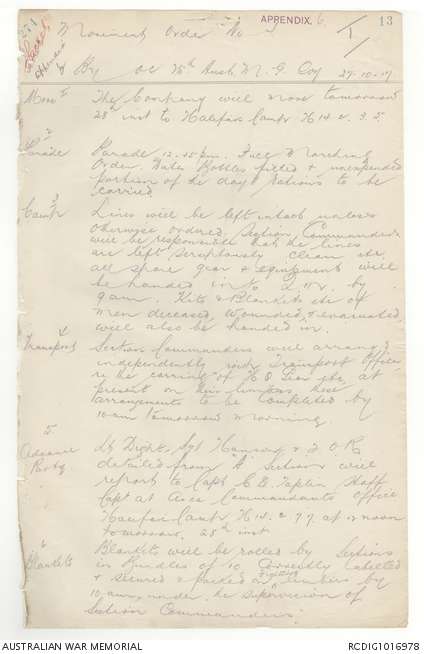 APPENDIX. 6.
13
Movement Order No
1
1
By OC 15th Aust. M. G. Coy 27-10-17
Move The Company will move tomorrow
28th inst to Halifax Camp H 14. a. 3. 5.
2
Parade Parade 12.45 pm. Full Marching
Order. Water Bottles filled & unexpended
portion of the days rations to be
carried
3
Camp Lines will be left intact unless
otherwise ordered. Section Commanders
will be responsible that the lines
are left scrupulously clean etc.
all spare gear & equipment will
be handed in to Q M. by
9 am. Kits & Blankets etc of
men deceased, wounded, & evacuated
will also be handed in.
4
Transport Section Commanders will arrange
independently with Transport Officer
re the carrying of at
present on limbers here
arrangements to be completed by
10 am tomorrow morning.
5.
Advance
Party
Lt Dight, Sgt & 2 O R
detailed from "A" Section will
report to Capt C. D. Taplin Staff
Capt at Area Commandants Office
Halifax Camp H 14. a. 9 9. at 12 noon
tomorrow. 28th inst
6
Blankets Blankets will be rolled by Sections
in Bundles of 10 correctly labelled
& stored & packed on fighting limbers by
10 am, under the supervision of
Section Commanders.
AUSTRALIAN WAR MEMORIAL
RCDIG1016978